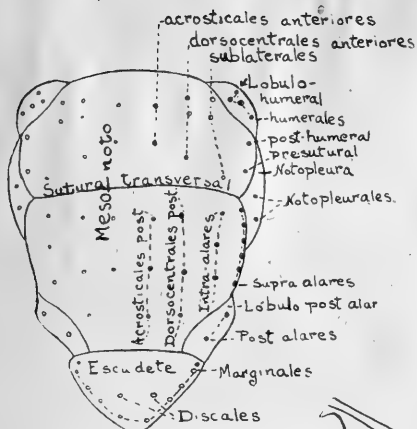 acrosticales anteriores
dorsocentrales anteriores
sublaterales
Lobulo-
humeral
humerales
post-humeral
presutural
Notopleura
Sutura transversal
Mesonoto
Notopleurales.
Acrosticales post
Dorsocentrales post.
Intra-alares
Supra alares
Lóbulo post alar
Post alares
Escudete
Marginales
Discales